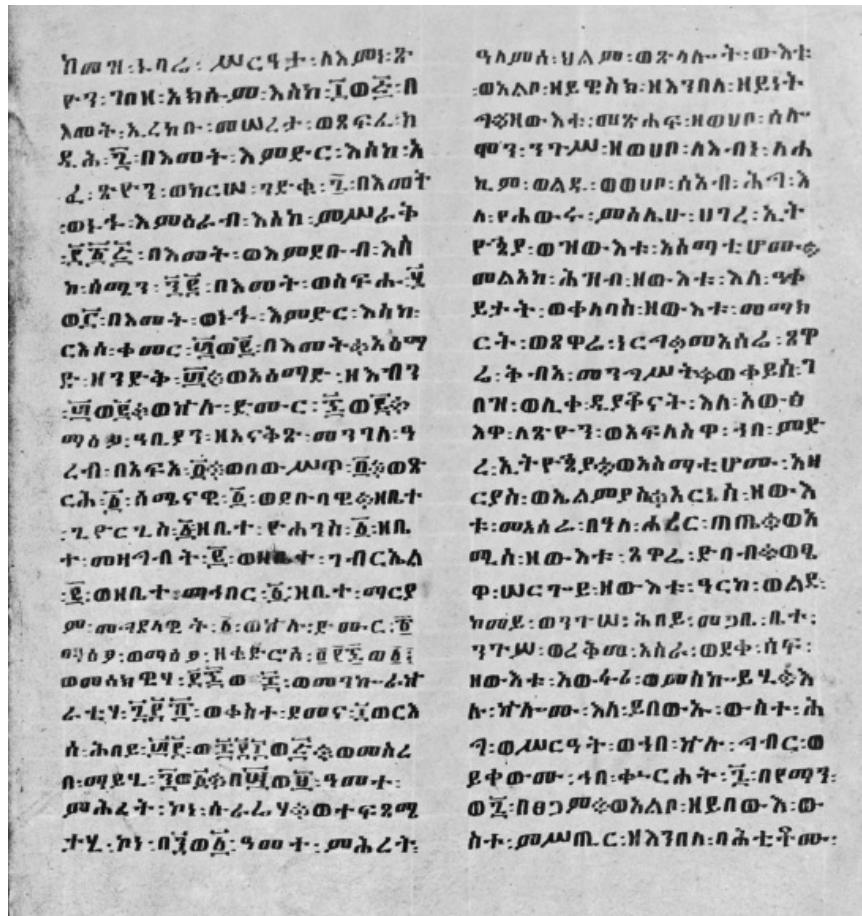 ከመዝ፡ኑባሬ፡ ሥርዓታ፡ለእምነ፡ጽ
ዮን፡ገበዘ፡አክሱም፡እስከ፡፲ወ፭፡በ
እመት፡ኢረከቡ፡መሠረታ፡ወጸፍፈ፡ከ
ዲሕ፡፯፡በእመት፡እምድር፡እስከ፡አ
ፈ፡ጽዮን፡ወከርሠ፡ንድቁ፡፯፡በእመት
፡ወኑኃ፡እምዕራብ፡እስከ፡መሥራቅ
፡በእመት፡ወእምደቡብ፡እስ
ከ፡ሰሜን፡፺፪፡በእመት፡ወስፍሐ፡
በእመት፡ወኑኃ፡እምድር፡እስከ፡
ርእሰ፡ቀመር፡፴ወ፪፡በእመት፨አዕማ
ድ፡ዘንድቅ፡፴፨ወአዕማድ፡ዘእብን
፡፴ወ፪፨ወኵሉ፡ድሙር፡
ማዕፆ፡ዓቢያን፡ዘአናቅጽ፡መንገለ፡ዓ
ረብ፡በአፍአ፡፨ወበውሥጥ፡፨ወጽ
ርሕ፡፩፡ሰሜናዊ፡፩፡ወደቡባዊ፨ዘቤተ
፡ጊዮርጊስ፡፩ዘቤተ፡ዮሐንስ፡፩፡ዘቤ
ተ፡መዛግብት፡፪፡ወዘቤተ፡ገብርኤል
፡፪፡ወዘቤተ፡ማኅበር፡፩፡ዘቤተ፡ማርያ
ም፡መግደላዊት፡፩፡ወኵሉ፡ድሙር፡
ማዕፆ፡ወማዕፆ፡ዘቴድሮስ፡
ወመሰክዊሃ፡ወመንኰራኵ
ራቲሃ፡ወቀስተ፡ደመና፡ወርእ
ሰ፡ሕበይ፡ወመሰረ
በ፡ማይሂ፡ዓመተ፡
ምሕረት፡ኮነ፡ሱራሬሃ፨ወተፍጻሜ
ታሂ፡ኮነ፡ዓመተ፡ምሕረት፡
ዓለምሰ፡ህልም፡ወጽላሎት፡ውእቱ፡
፡ወአልቦ፡ዘይዌስክ፡ዘእንበለ፡ዘይነት
ግ፨ዘውእቱ፡መጽሐፍ፡ዘወሀቦ፡ሰሎ
ሞን፡ንጉሥ፡ዘወሀቦ፡ለእብነ፡ለሐ
ኪም፡ወልዱ፡ወወሀቦ፡ሰእብ፡ሕግ፡እ
ለ፡የሐውሩ፡ምስሌሁ፡ሀገረ፡ኢት
ዮጵያ፡ወዝውእቱ፡አስማቲሆሙ፨
መልአክ፡ሕዝብ፡ዘውእቱ፡እለ፡ዓቀ
ይታት፡ወቀላባስ፡ዘውእቱ፡መማክ
ርት፡ወጸዋሬ፡ነርግ፨መአሰሬ፡ጸዋ
ሬ፡ቅብአ፡መንግሥት፨ወቀይሰ፡ገ
በዝ፡ወሊቀ፡ዲያቆናት፡እለ፡አውፅ
እዋ፡ለጽዮን፡ወአፍለስዋ፡ኀበ፡ምድ
ረ፡ኢትዮጵያ፨ወአስማቲሆሙ፡አዛ
ርያስ፡ወኤልምያስ፨እርኔስ፡ዘውእ
ቱ፡መአሰራ፡በዓለ፡ሐሬር፡ጠጤ፨ወአ
ሚስ፡ዘውእቱ፡ጸዋሬ፡ድባብ፨ወፄ
ዋ፡ሠርጐይ፡ዘውእቱ፡ዓርከ፡ወልደ፡
ከመይ፡ወንጉሠ፡ሕበይ፡መጋቤ፡ቤተ፡
ንጉሥ፡ወረቅመ፡አስራ፡ወደቀ፡ሰፍ፡
ዘውእቱ፡አውፋሪ፡ወምስከ፡ይሂ፨እ
ሉ፡ኵሎሙ፡እለ፡ይበውኡ፡ውስተ፡ሕ
ግ፡ወሥርዓት፡ወኀበ፡ኵሉ፡ግብር፡ወ
ይቀውሙ፡ኀበ፡ቍርሐት፡፯፡በየማን፡
ወ፯፡በፀጋም፨ወአልቦ፡ዘይበውእ፡ው
ስተ፡ምሥጢር፡ዘእንበለ፡ባሕቲቶሙ፡